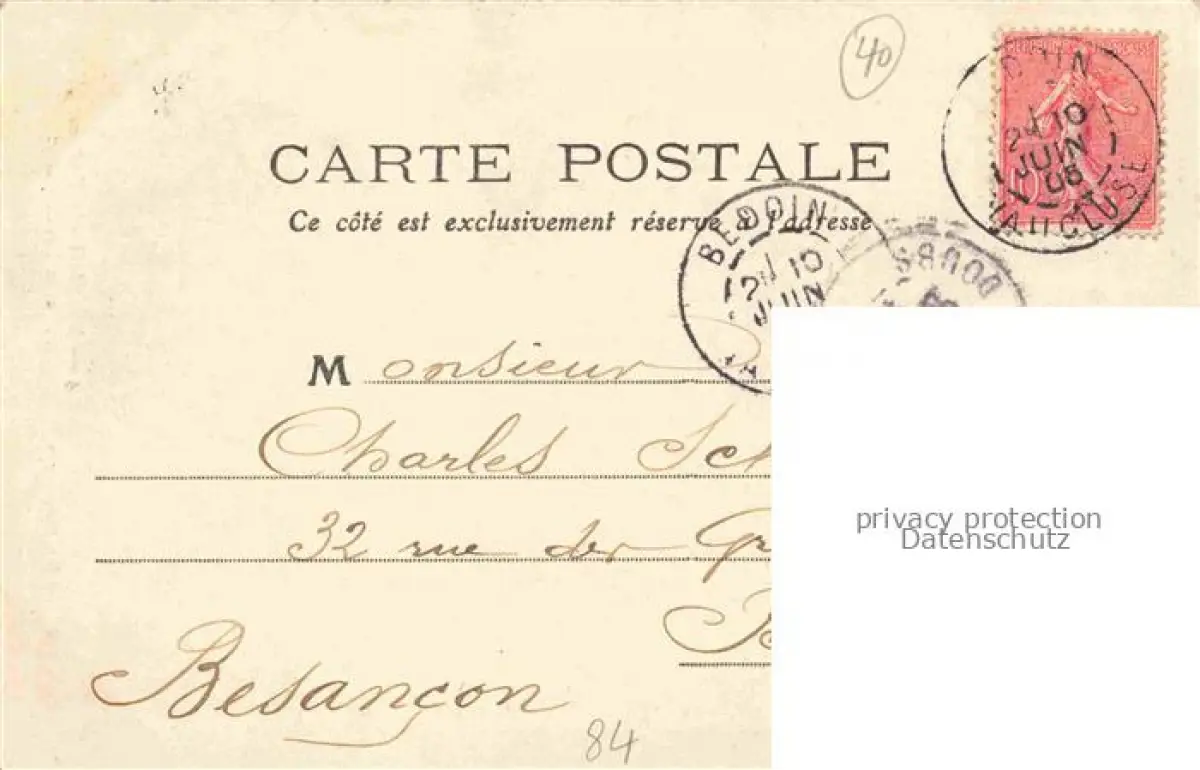 40
CARTE POSTALE
Ce côté est exclusivement réservé à l'adresse
BEDOIN
10
JUIN
VAUCLUSE
BEDOIN
10
JUIN
DOUBS
Monsieur
Charles
32 rue des
Besançon
84
privacy protection
Datenschutz